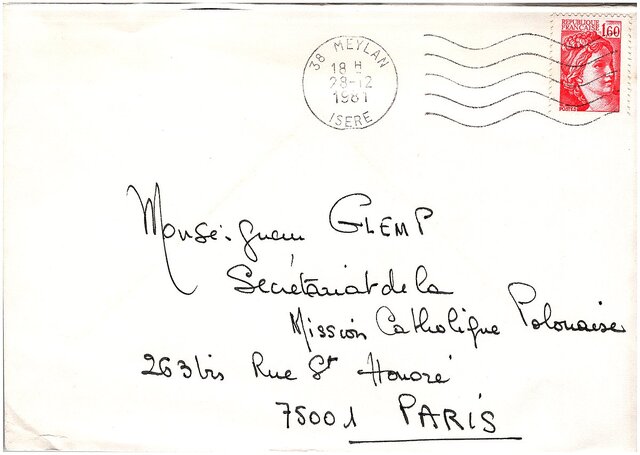 38 MEYLAN
18 H
28-12
1981
ISERE
REPUBLIQUE
FRANCAISE
1,60
POSTES
Monseigneur GLEMP
Secrétariat de la
Mission Catholique Polonaise
263 bis Rue St Honoré
75001 PARIS